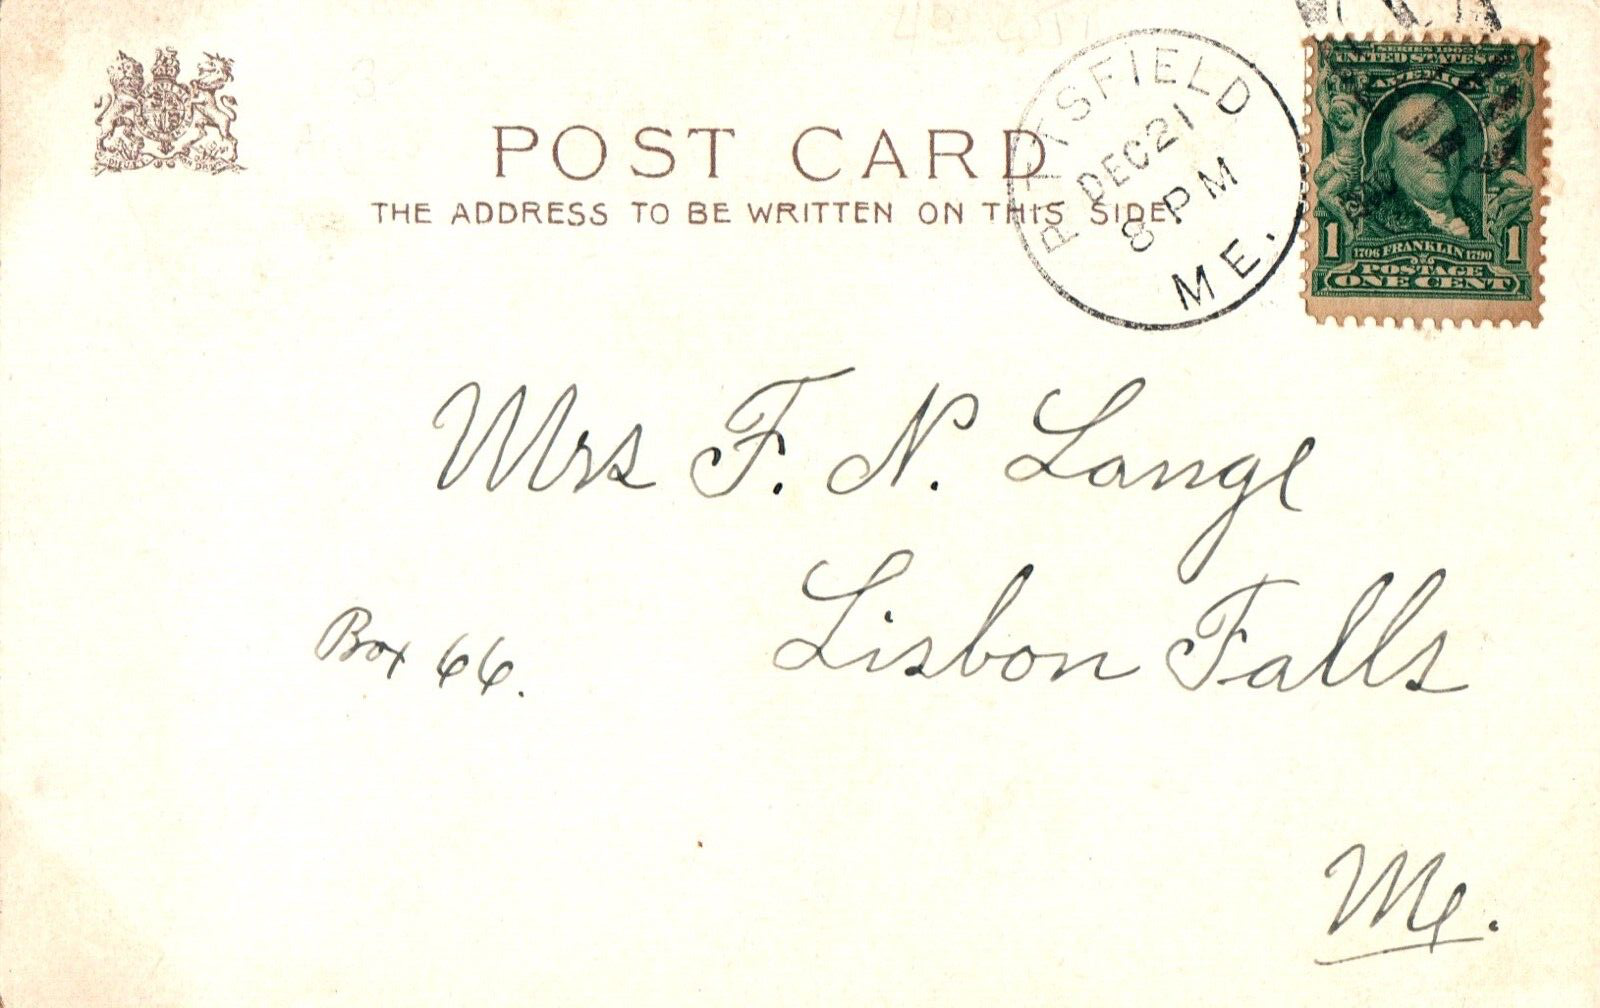 POST CARD
THE ADDRESS TO BE WRITTEN ON THIS SIDE
PITTSFIELD
DEC 21
8 PM
ME.
SERIES 1902
UNITED STATES OF
AMERICA
1706 FRANKLIN 1790
1 POSTAGE 1
ONE CENT
Mrs F. N. Lange
Lisbon Falls
Box 66.
Me.